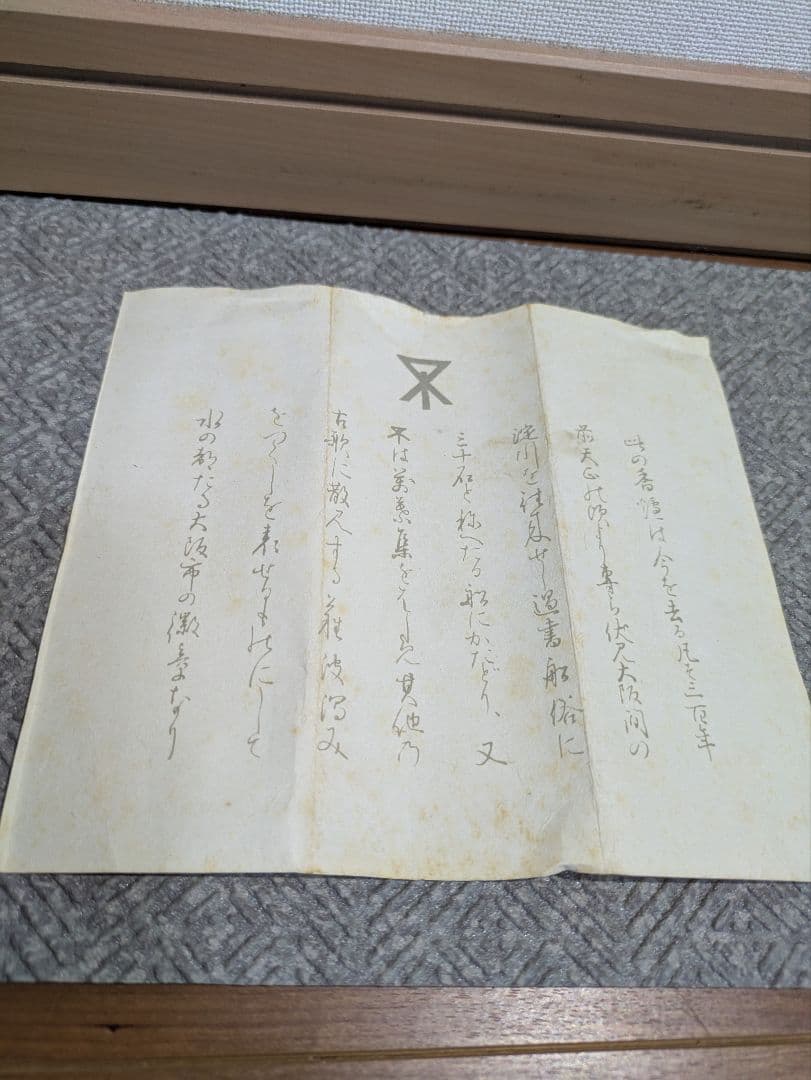 此の香爐は今を去る凡そ三百年
前天正の頃より専ら伏見大阪間の
淀川を往来せし過書船俗に
三十石と称へたる船にかたどり、又
は萬葉集をはじめ其他の
古歌に散見する難波潟み
をつくしを表せるものにして
水の都たる大阪市の徽章なり